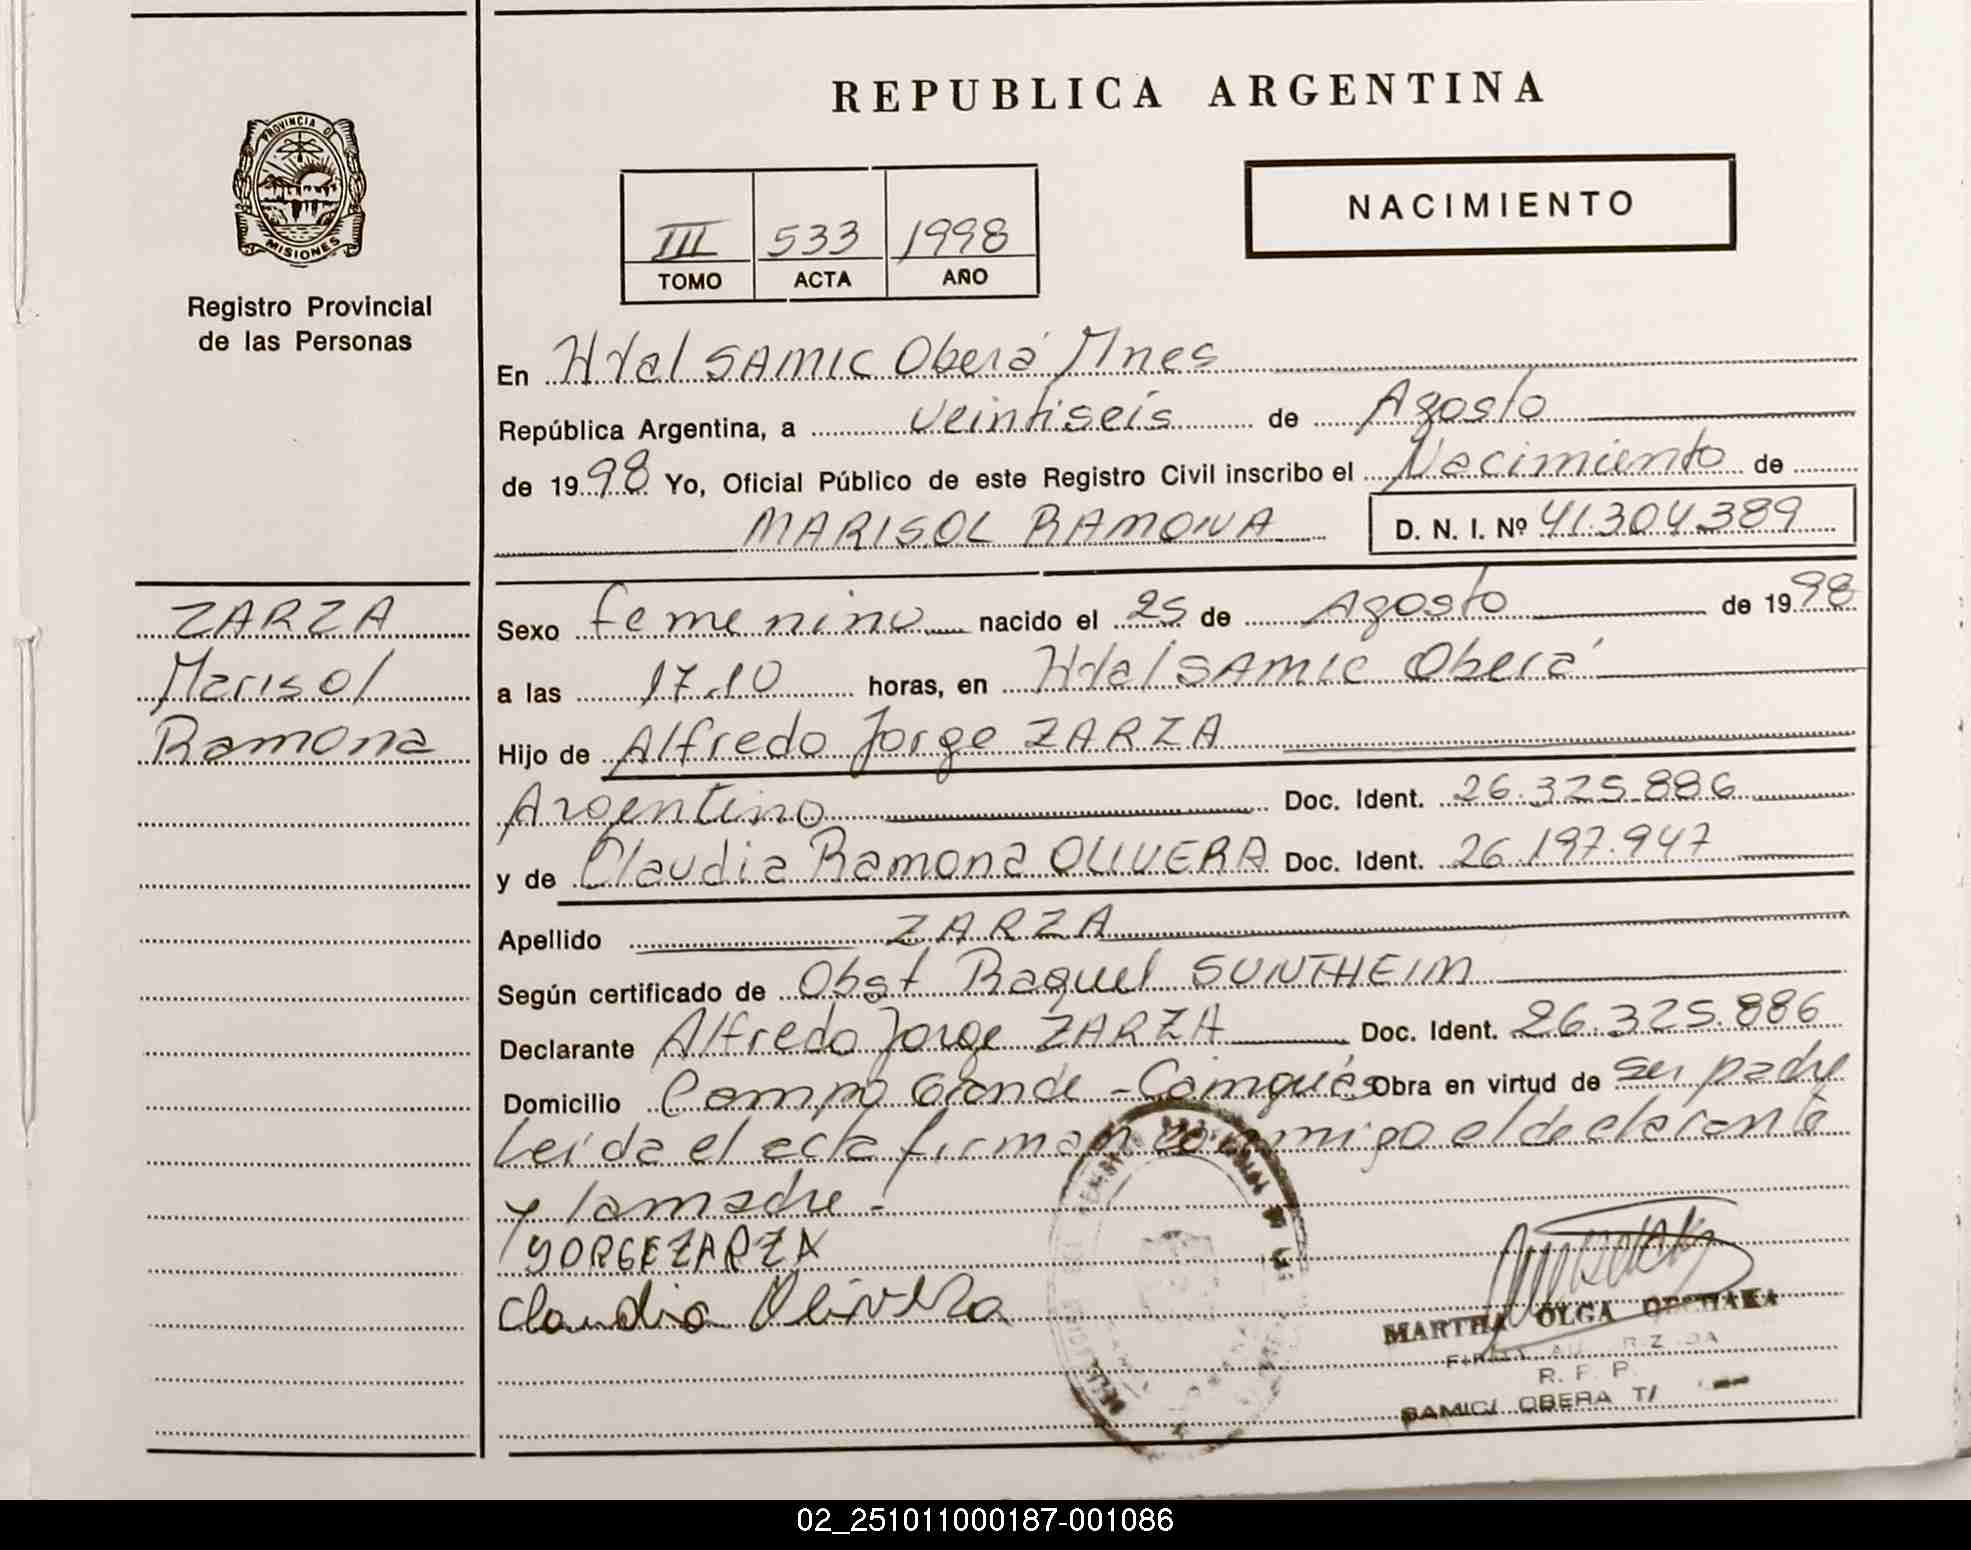 REPUBLICA ARGENTINA
PROVINCIA D
MISIONES
Registro Provincial
de las Personas
NACIMIENTO
III 533 1998
TOMO ACTA AÑO
En Htal SAMIC Oberá Mnes
República Argentina, a veintiseis de Agosto
de 1998 Yo, Oficial Público de este Registro Civil inscribo el Nacimiento de
MARISOL RAMONA D. N. I. Nº 41.304.389
ZARZA
Marisol
Ramona
Sexo femenino nacido el 25 de Agosto de 1998
a las 17.10 horas, en Htal SAMIC Oberá
Hijo de Alfredo Jorge ZARZA
Argentino Doc. Ident. 26.325.886
y de Claudia Ramona OLIVERA Doc. Ident. 26.197.947
Apellido ZARZA
Según certificado de Obst Raquel SUNTHEIM
Declarante Alfredo Jorge ZARZA Doc. Ident. 26.325.886
Domicilio Campo Grande - Cainguás Obra en virtud de ser padre
Leída el acta firman conmigo el declarante
y la madre.-
JORGE ZARZA
Claudia Olivera
MARTHA OLGA
R. P. P.
SAMIC/ OBERA T/
02_251011000187-001086